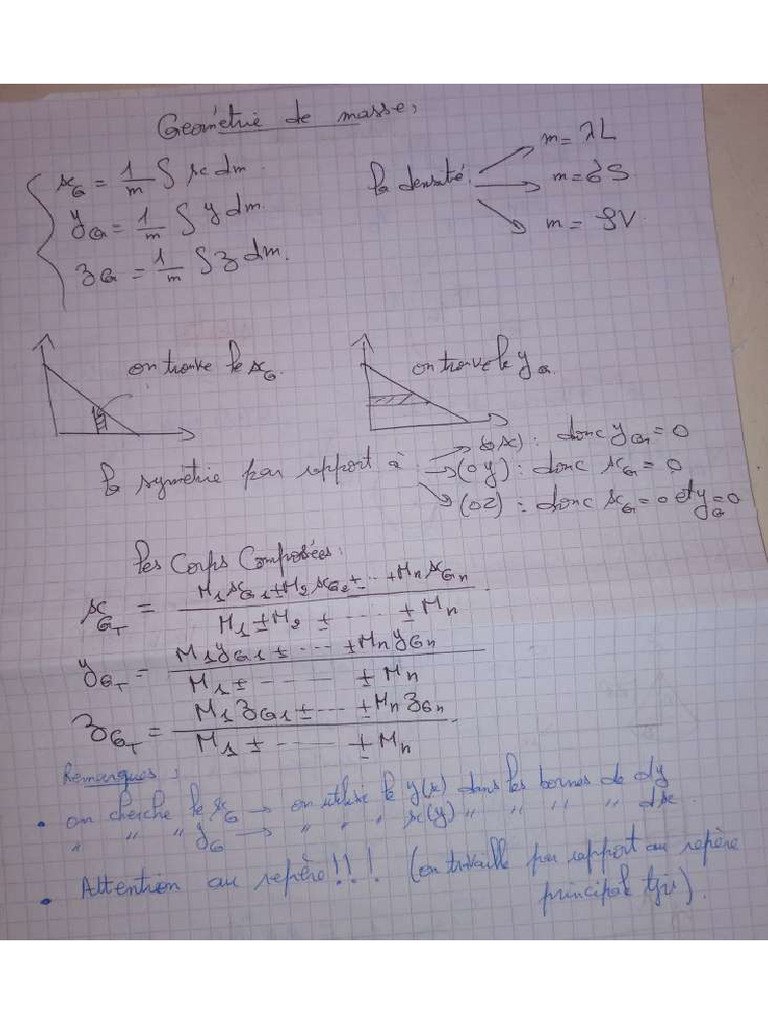 Géométrie de masse,
x_G = 1/m ∫ x dm.
y_G = 1/m ∫ y dm.
z_G = 1/m ∫ z dm.
la densité.
m = λL
m = δS
m = ρV
on trouve le x_G.
on trouve le y_G.
la symétrie par rapport à
→ (ox) : donc y_G = 0
→ (oy) : donc x_G = 0
→ (oz) : donc x_G = 0 et y_G = 0
les Corps Composées :
x_GT = (M1 x_G1 ± M2 x_G2 ± ... + Mn x_Gn) / (M1 ± M2 ± ... ± Mn)
y_GT = (M1 y_G1 ± ... ± Mn y_Gn) / (M1 ± ... ± Mn)
z_GT = (M1 z_G1 ± ... ± Mn z_Gn) / (M1 ± ... ± Mn)
Remarques :
• on cherche le x_G → on utilise le y(x) dans les bornes de dy
" " " y_G → " " " x(y) " " " " dx.
• Attention au repère !!! (on travaille par rapport au repère
principal tjr).